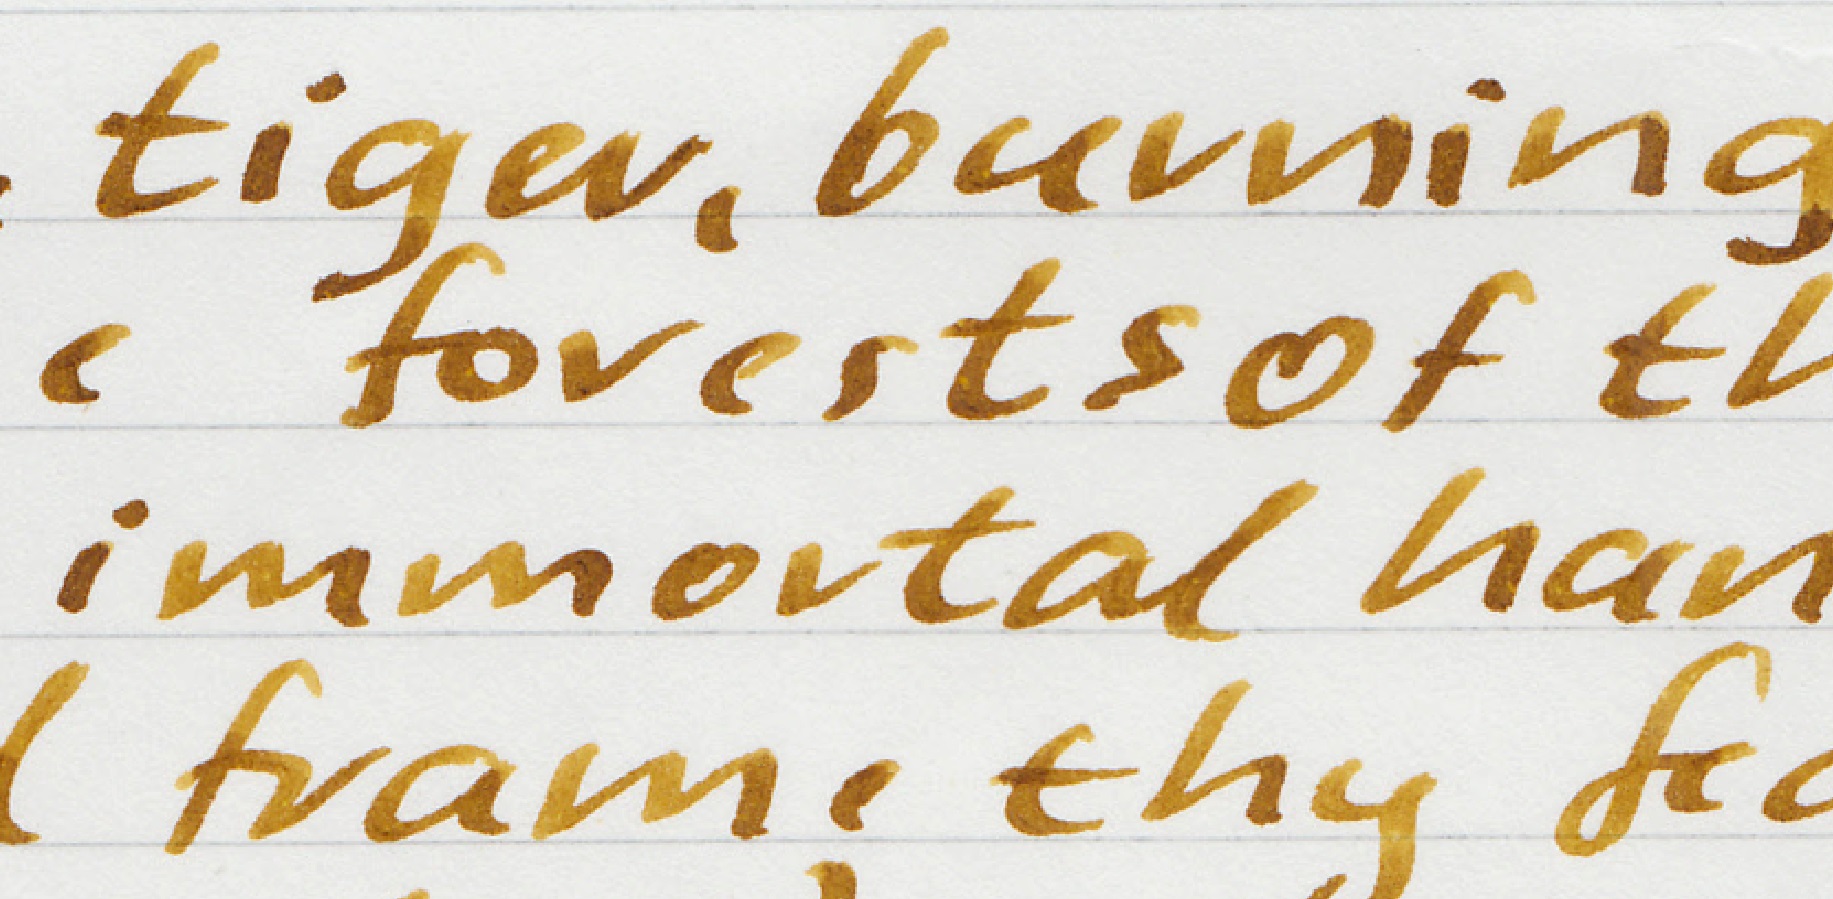 , tiger, burning
e forests of th
immortal han
l frame thy fea